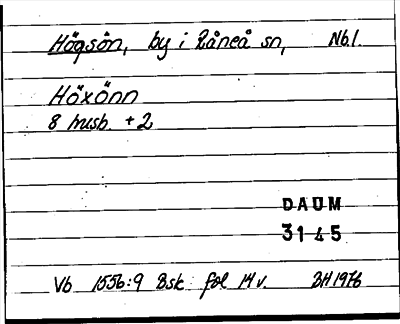 Högsön, by i Råneå sn, Nb.
Höxönn
8 husb. + 2
DAUM
3145
Vb 1556:9 Bsk fol 14 v. BH 1976